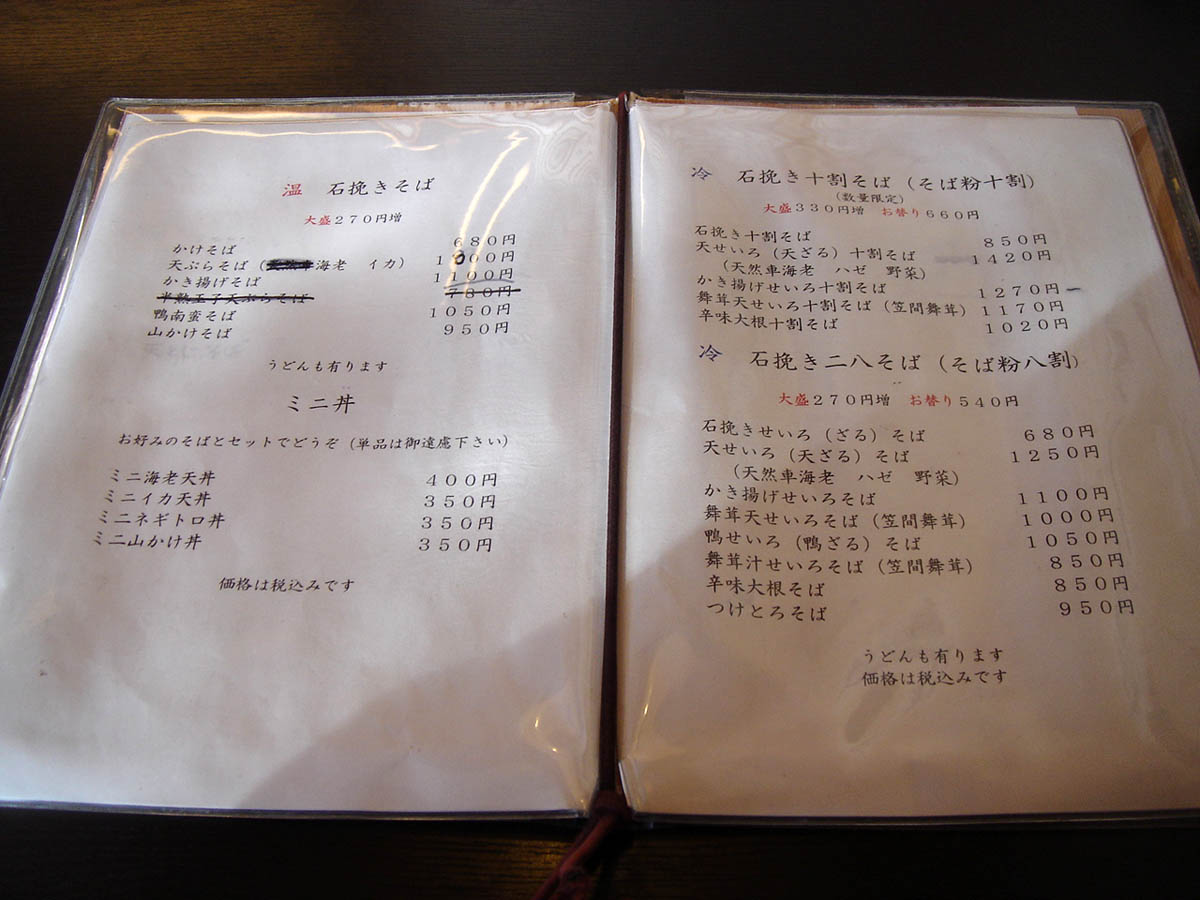 温 石挽きそば
大盛270円増
かけそば 680円
天ぷらそば(海老 イカ) 1000円
かき揚げそば 1100円
半熟玉子天ぷらそば 730円
鴨南蛮そば 1050円
山かけそば 950円
うどんも有ります
ミニ丼
お好みのそばとセットでどうぞ(単品は御遠慮下さい)
ミニ海老天丼 400円
ミニイカ天丼 350円
ミニネギトロ丼 350円
ミニ山かけ丼 350円
価格は税込みです
冷 石挽き十割そば(そば粉十割)
(数量限定)
大盛330円増 お替り660円
石挽き十割そば 850円
天せいろ(天ざる)十割そば 1420円
(天然車海老 ハゼ 野菜)
かき揚げせいろ十割そば 1270円
舞茸天せいろ十割そば(笠間舞茸) 1170円
辛味大根十割そば 1020円
冷 石挽き二八そば(そば粉八割)
大盛270円増 お替り540円
石挽きせいろ(ざる)そば 680円
天せいろ(天ざる)そば 1250円
(天然車海老 ハゼ 野菜)
かき揚げせいろそば 1100円
舞茸天せいろそば(笠間舞茸) 1000円
鴨せいろ(鴨ざる)そば 1050円
舞茸汁せいろそば(笠間舞茸) 850円
辛味大根そば 850円
つけとろそば 950円
うどんも有ります
価格は税込みです